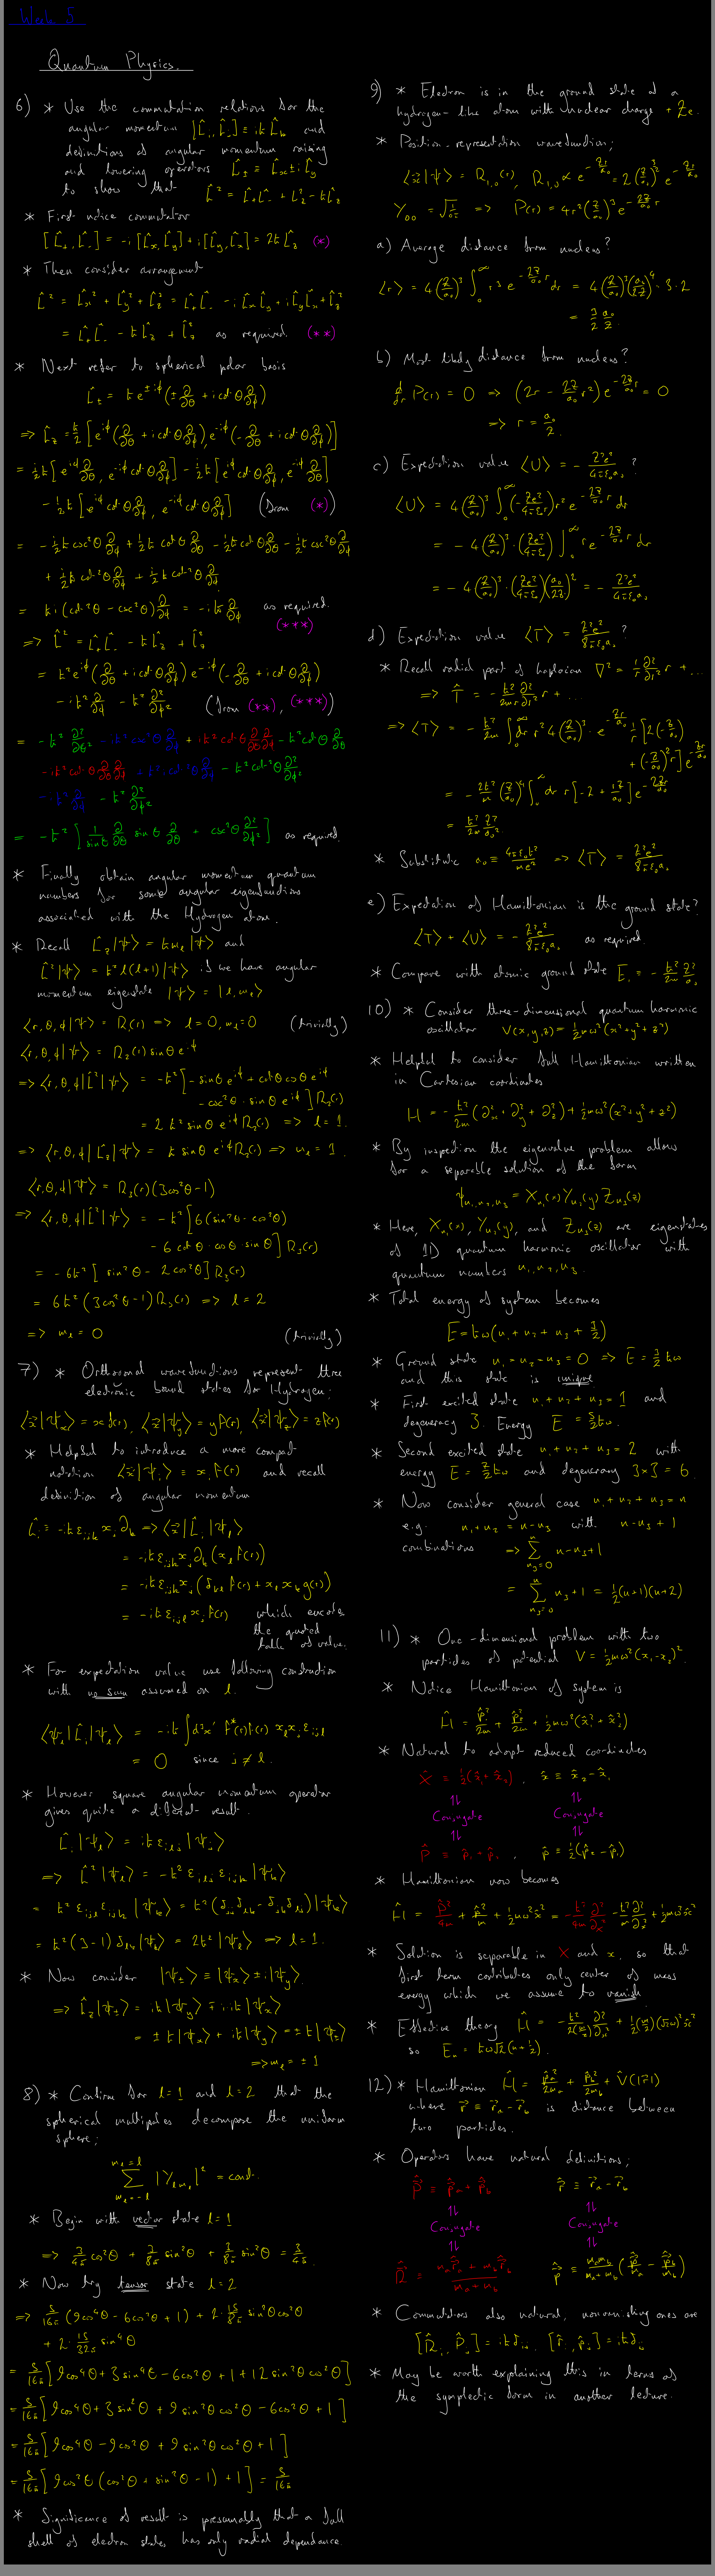 Week 5
Quantum Physics.
6) * Use the commutation relations for the
angular momentum [L̂ᵢ, L̂ⱼ] = iħ L̂ₖ and
definitions of angular momentum raising
and lowering operators L̂± = L̂x ± i L̂y
to show that L̂² = L̂₊L̂₋ + L̂z² - ħL̂z
* First notice commutator
[L̂₊, L̂₋] = -i[L̂x, L̂y] + i[L̂y, L̂x] = 2ħL̂z (*)
* Then consider arrangement
L̂² = L̂x² + L̂y² + L̂z² = L̂₊L̂₋ - iL̂xL̂y + iL̂yL̂x + L̂z²
= L̂₊L̂₋ - ħL̂z + L̂z² as required. (**)
* Next refer to spherical polar basis
L̂± = ħe^{±iφ}(±∂/∂θ + i cotθ ∂/∂φ)
=> L̂z = ħ/2 [e^{iφ}(∂/∂θ + i cotθ ∂/∂φ), e^{-iφ}(-∂/∂θ + i cotθ ∂/∂φ)]
= i½ħ[e^{iφ}∂/∂θ, e^{-iφ}cotθ ∂/∂φ] - i½ħ[e^{iφ}cotθ ∂/∂φ, e^{-iφ}∂/∂θ]
- ½ħ[e^{iφ}cotθ ∂/∂φ, e^{-iφ}cotθ ∂/∂φ] (from (*))
= -i½ħcsc²θ ∂/∂φ + ½ħcotθ ∂/∂θ - ½ħcotθ ∂/∂θ - i½ħcsc²θ ∂/∂φ
+ i½ħcot²θ ∂/∂φ + i½ħcot²θ ∂/∂φ
= ħi(cot²θ - csc²θ)∂/∂φ = -iħ∂/∂φ as required. (***)
=> L̂² = L̂₊L̂₋ - ħL̂z + L̂z²
= ħ²e^{iφ}(∂/∂θ + i cotθ ∂/∂φ)e^{-iφ}(-∂/∂θ + i cotθ ∂/∂φ)
- iħ²∂/∂φ - ħ²∂²/∂φ² (from (**), (***))
= -ħ²∂²/∂θ² - iħ²csc²θ ∂/∂φ + iħ²cotθ ∂/∂θ ∂/∂φ - ħ²cotθ ∂/∂θ
- iħ²cotθ ∂/∂θ ∂/∂φ + iħ²cot²θ ∂/∂φ - ħ²cot²θ ∂²/∂φ²
- iħ²∂/∂φ - ħ²∂²/∂φ²
= -ħ²[1/sinθ ∂/∂θ sinθ ∂/∂θ + csc²θ ∂²/∂φ²] as required.
* Finally obtain angular momentum quantum
numbers for some angular eigenfunctions
associated with the Hydrogen atom.
* Recall L̂z|ψ> = ħmₗ|ψ> and
L̂²|ψ> = ħ²l(l+1)|ψ> if we have angular
momentum eigenstate |ψ> = |l, mₗ>
<r,θ,φ|ψ> = R₁(r) => l=0, mₗ=0 (trivially)
<r,θ,φ|ψ> = R₂(r) sinθ e^{iφ}
=> <r,θ,φ|L̂²|ψ> = -ħ²[-sinθ e^{iφ} + cotθ cosθ e^{iφ}
- csc²θ · sinθ e^{iφ}]R₂(r)
= 2ħ² sinθ e^{iφ}R₂(r) => l=1.
=> <r,θ,φ|L̂z|ψ> = ħ sinθ e^{iφ}R₂(r) => mₗ=1.
<r,θ,φ|ψ> = R₃(r)(3cos²θ-1)
=> <r,θ,φ|L̂²|ψ> = -ħ²[6(sin²θ - cos²θ)
- 6 cotθ · cosθ · sinθ]R₃(r)
= -6ħ²[sin²θ - 2cos²θ]R₃(r)
= 6ħ²(3cos²θ-1)R₃(r) => l=2
=> mₗ=0 (trivially)
7) * Orthonormal wavefunctions represent three
electronic bound states for Hydrogen;
<x⃗|ψx> = xf(r), <x⃗|ψy> = yf(r), <x⃗|ψz> = zf(r)
* Helpful to introduce a more compact
notation <x⃗|ψᵢ> ≡ xᵢf(r) and recall
definition of angular momentum
L̂ᵢ = -iħεᵢⱼₖxⱼ∂ₖ => <x⃗|L̂ᵢ|ψₗ>
= -iħεᵢⱼₖxⱼ∂ₖ(xₗf(r))
= -iħεᵢⱼₖxⱼ(δₖₗf(r) + xₗxₖg(r))
= -iħεᵢⱼₗxⱼf(r) which encodes
the quoted
table of values.
* For expectation value use following construction
with no sum assumed on l.
<ψₗ|L̂ᵢ|ψₗ> = -iħ∫d³x' f*(r)f(r)xₗxⱼεᵢⱼₗ
= 0 since j≠l.
* However square angular momentum operator
gives quite a different result.
L̂ᵢ|ψₗ> = iħεᵢₗⱼ|ψⱼ>
=> L̂²|ψₗ> = -ħ²εᵢₗⱼεᵢⱼₖ|ψₖ>
= ħ²εᵢⱼₗεᵢⱼₖ|ψₖ> = ħ²(δⱼⱼδₗₖ - δⱼₖδₗⱼ)|ψₖ>
= ħ²(3-1)δₗₖ|ψₖ> = 2ħ²|ψₗ> => l=1.
* Now consider |ψ±> ≡ |ψx> ± i|ψy>.
=> L̂z|ψ±> = iħ|ψy> ∓ i·iħ|ψx>
= ±ħ|ψx> + iħ|ψy> = ±ħ|ψ±>
=> mₗ = ±1
8) * Confirm for l=1 and l=2 that the
spherical multipoles decompose the uniform
sphere;
∑_{mₗ=-l}^{mₗ=l} |Y_{l,mₗ}|² = const.
* Begin with vector state l=1
=> 3/4π cos²θ + 3/8π sin²θ + 3/8π sin²θ = 3/4π.
* Now try tensor state l=2
=> 5/16π (9cos⁴θ - 6cos²θ + 1) + 2·15/8π sin²θcos²θ
+ 2·15/32π sin⁴θ
= 5/16π [9cos⁴θ + 3sin⁴θ - 6cos²θ + 1 + 12sin²θcos²θ]
= 5/16π [9cos⁴θ + 3sin²θ + 9sin²θcos²θ - 6cos²θ + 1]
= 5/16π [9cos⁴θ - 9cos²θ + 9sin²θcos²θ + 1]
= 5/16π [9cos²θ(cos²θ + sin²θ - 1) + 1] = 5/16π
* Significance of result is presumably that a full
shell of electron states has only radial dependance.
9) * Electron is in the ground state of a
hydrogen-like atom with nuclear charge +Ze.
* Position-representation wavefunction;
<x⃗|ψ> = R₁,₀(r), R₁,₀ ∝ e^{-Zr/a₀} = 2(Z/a₀)^{3/2} e^{-Zr/a₀}
Y₀₀ = √(1/4π) => P(r) = 4r²(Z/a₀)³e^{-2Zr/a₀}
a) Average distance from nucleus?
<r> = 4(Z/a₀)³∫₀^∞ r³e^{-2Zr/a₀}dr = 4(Z/a₀)³(a₀/2Z)⁴·3·2
= 3/2 a₀/Z.
b) Most likely distance from nucleus?
d/dr P(r) = 0 => (2r - 2Z/a₀ r²)e^{-2Zr/a₀} = 0
=> r = a₀/Z.
c) Expectation value <U> = -Z²e²/4πε₀a₀?
<U> = 4(Z/a₀)³∫₀^∞(-Ze²/4πε₀)r²e^{-2Zr/a₀}dr
= -4(Z/a₀)³·(Ze²/4πε₀)∫₀^∞ re^{-2Zr/a₀}dr
= -4(Z/a₀)³·(Ze²/4πε₀)(a₀/2Z)² = -Z²e²/4πε₀a₀
d) Expectation value <T> = Z²e²/8πε₀a₀?
* Recall radial part of laplacian ∇² = 1/r ∂²/∂r² r + ...
=> T̂ = -ħ²/2mr ∂²/∂r² r + ...
=> <T> = -ħ²/2m ∫₀^∞dr r²4(Z/a₀)³·e^{-Zr/a₀} 1/r [2(-Z/a₀)
+ (-Z/a₀)²r]e^{-Zr/a₀}
= -2ħ²/m (Z/a₀)⁴∫₀^∞dr r[-2 + Z/a₀ r]e^{-2Zr/a₀}
= ħ²Z²/2m a₀²
* Substitute a₀ = 4πε₀ħ²/me² => <T> = Z²e²/8πε₀a₀
e) Expectation of Hamiltonian is the ground state?
<T> + <U> = -Z²e²/8πε₀a₀ as required.
* Compare with atomic ground state E₁ = -ħ²/2m Z²/a₀²
10) * Consider three-dimensional quantum harmonic
oscillator V(x,y,z) = ½mω²(x²+y²+z²)
* Helpful to consider full Hamiltonian written
in Cartesian coordinates
H = -ħ²/2m(∂x² + ∂y² + ∂z²) + ½mω²(x²+y²+z²)
* By inspection the eigenvalue problem allows
for a separable solution of the form
ψ_{n₁,n₂,n₃} = X_{n₁}(x)Y_{n₂}(y)Z_{n₃}(z)
* Here, X_{n₁}(x), Y_{n₂}(y), and Z_{n₃}(z) are eigenstates
of 1D quantum harmonic oscillator with
quantum numbers n₁, n₂, n₃.
* Total energy of system becomes
E = ħω(n₁ + n₂ + n₃ + 3/2)
* Ground state n₁ = n₂ = n₃ = 0 => E = 3/2 ħω
and this state is unique
* First excited state n₁ + n₂ + n₃ = 1 and
degeneracy 3. Energy E = 5/2 ħω.
* Second excited state n₁ + n₂ + n₃ = 2 with
energy E = 7/2 ħω and degeneracy 3×3 = 6.
* Now consider general case n₁ + n₂ + n₃ = n
e.g. n₁ + n₂ = n - n₃ with n - n₃ + 1
combinations => ∑_{n₃=0}^{n} n - n₃ + 1
= ∑_{n₃=0}^{n} n₃ + 1 = ½(n+1)(n+2)
11) * One-dimensional problem with two
particles of potential V = ½mω²(x₁-x₂)².
* Notice Hamiltonian of system is
Ĥ = p̂₁²/2m + p̂₂²/2m + ½mω²(x̂₁² + x̂₂²)
* Natural to adopt reduced coordinates
X̂ ≡ ½(x̂₁+x̂₂), x̂ ≡ x̂₂ - x̂₁
⇅ ⇅
Conjugate Conjugate
⇅ ⇅
P̂ ≡ p̂₁ + p̂₂, p̂ ≡ ½(p̂₂ - p̂₁)
* Hamiltonian now becomes
Ĥ = P̂²/4m + p̂²/m + ½mω²x̂² = -ħ²/4m ∂²/∂X² - ħ²/m ∂²/∂x² + ½mω²x̂²
* Solution is separable in X and x, so that
first term contributes only center of mass
energy which we assume to vanish.
* Effective theory Ĥ = -ħ²/2(m/2) ∂²/∂x² + ½(m/2)(√2ω)²x̂²
so Eₙ = ħω√2(n+½).
12) * Hamiltonian Ĥ = p̂ₐ²/2mₐ + p̂_b²/2m_b + V̂(|r⃗|)
where r⃗ ≡ r⃗ₐ - r⃗_b is distance between
two particles.
* Operators have natural definitions;
P̂ ≡ p̂ₐ + p̂_b r̂ ≡ r⃗ₐ - r⃗_b
⇅ ⇅
Conjugate Conjugate
⇅ ⇅
R̂ = (mₐr̂ₐ + m_b r̂_b)/(mₐ + m_b) p̂ ≡ mₐm_b/(mₐ+m_b) (p̂ₐ/mₐ - p̂_b/m_b)
* Commutators also natural, nonvanishing ones are
[R̂ᵢ, P̂ⱼ] = iħδᵢⱼ, [r̂ᵢ, p̂ⱼ] = iħδᵢⱼ
* May be worth explaining this in terms of
the symplectic form in another lecture.